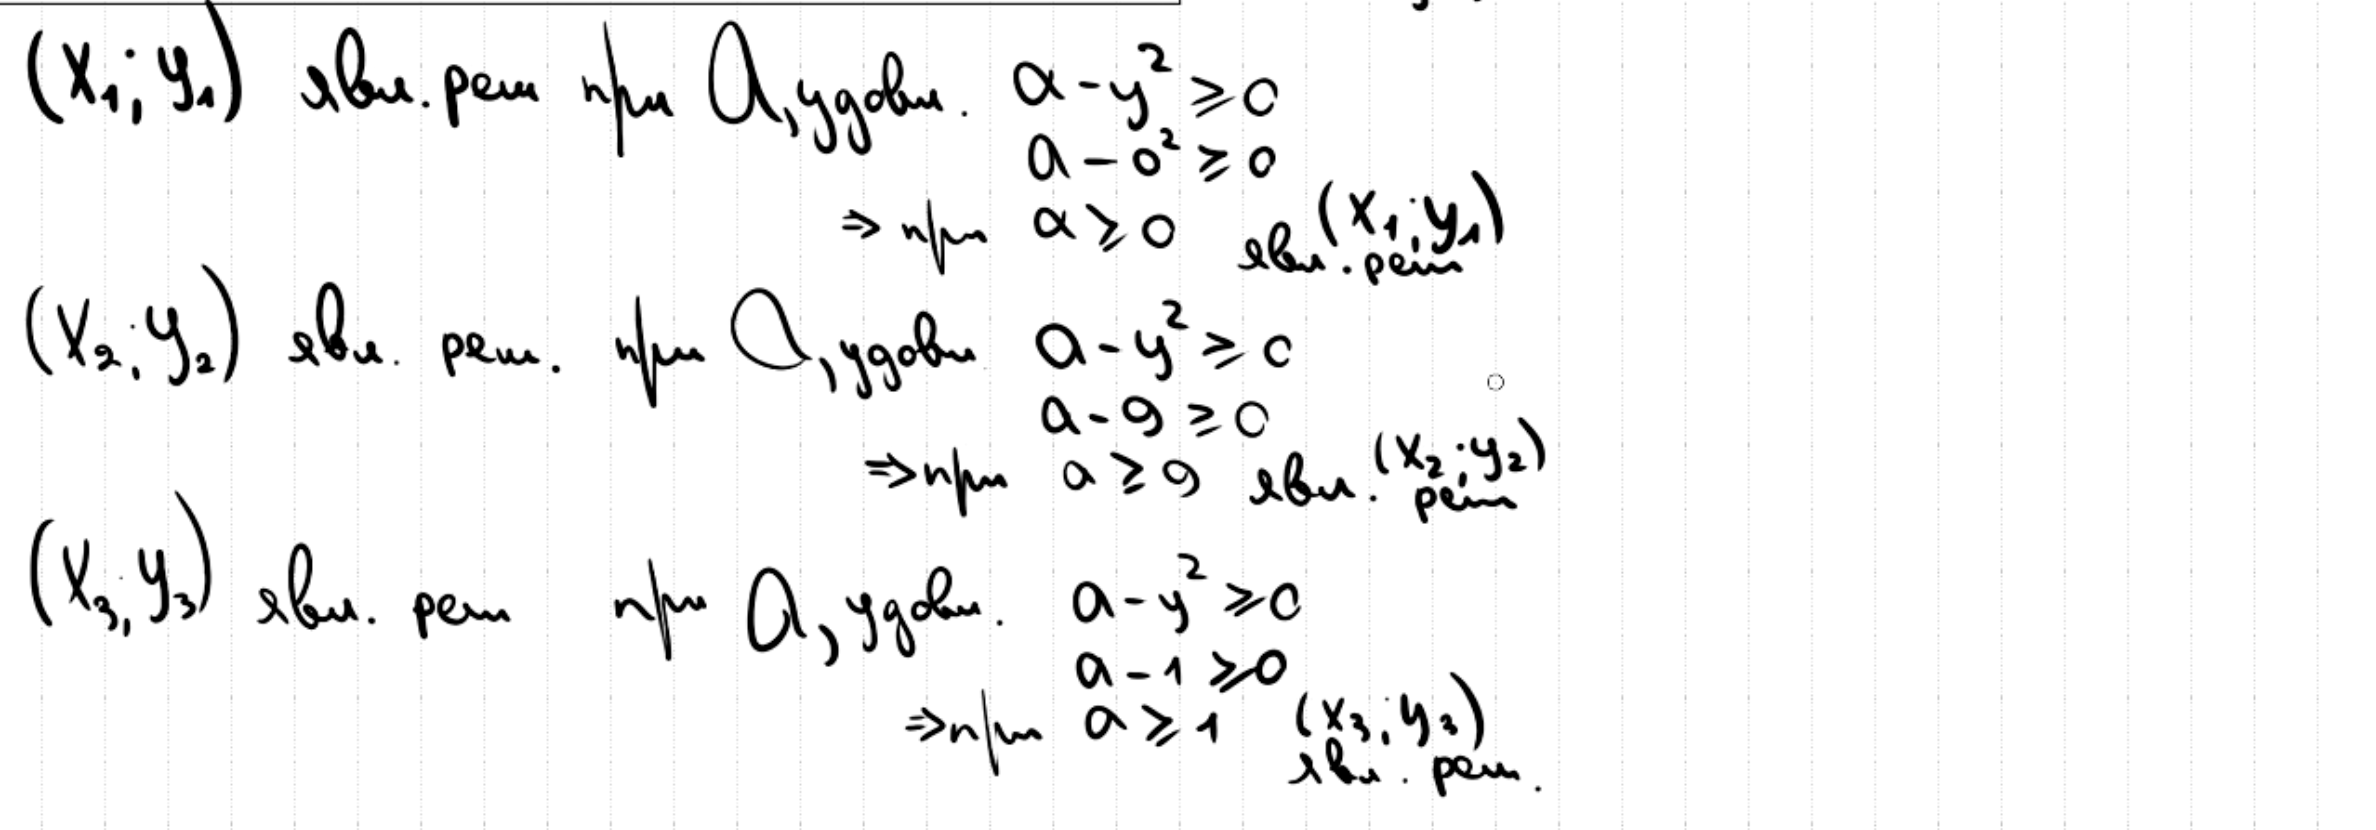 (x₁; y₁) явл. реш при a, удовл. a - y² ⩾ 0
a - 0² ⩾ 0
⇒ при a ⩾ 0 явл. реш (x₁; y₁)
(x₂; y₂) явл. реш. при a, удовл a - y² ⩾ 0
a - 9 ⩾ 0
⇒ при a ⩾ 9 явл. реш (x₂; y₂)
(x₃; y₃) явл. реш при a, удовл. a - y² ⩾ 0
a - 1 ⩾ 0
⇒ при a ⩾ 1 (x₃; y₃) явл. реш.